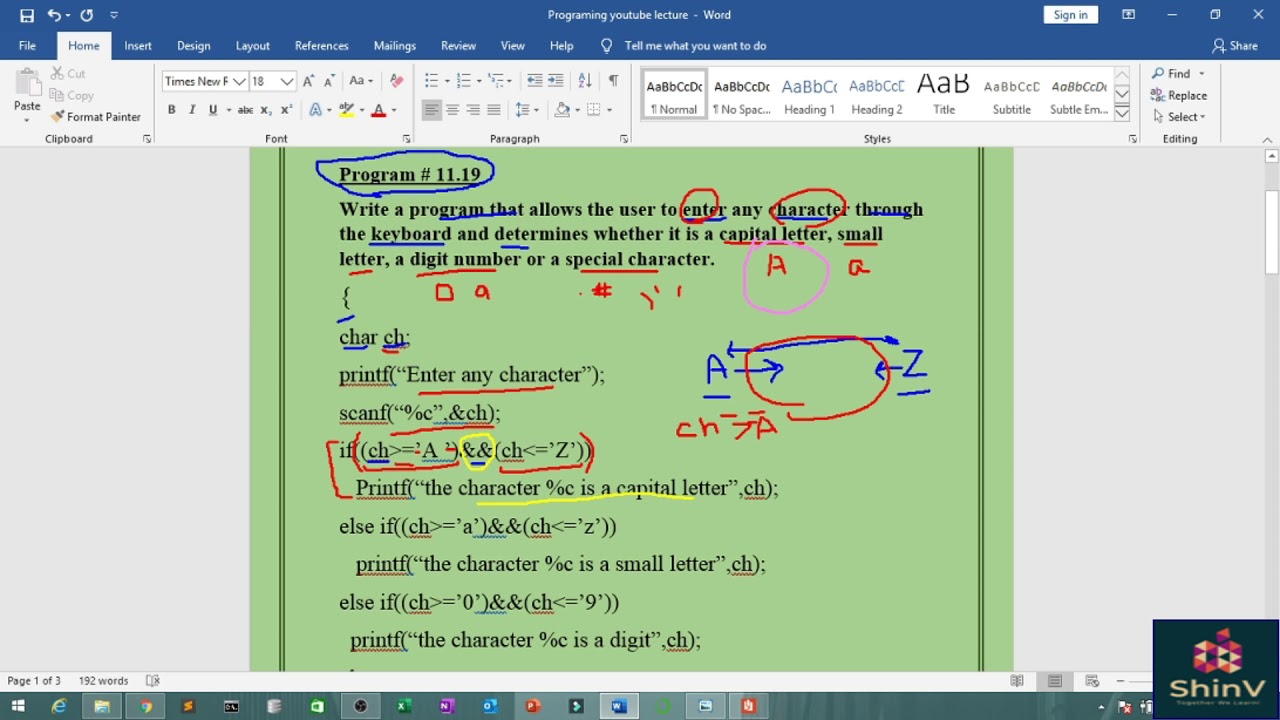 Programing youtube lecture - Word
Sign in
File Home Insert Design Layout References Mailings Review View Help Tell me what you want to do Share
Paste
Cut
Copy
Format Painter
Clipboard
Times New F 18
Font
Paragraph
AaBbCcDc AaBbCcDc AaBbCc AaBbCcC AaB AaBbCcD AaBbCcDc
¶ Normal ¶ No Spac... Heading 1 Heading 2 Title Subtitle Subtle Em...
Styles
Find
Replace
Select
Editing
Program # 11.19
Write a program that allows the user to enter any character through
the keyboard and determines whether it is a capital letter, small
letter, a digit number or a special character.
A a
#
{
char ch;
printf(“Enter any character”);
A Z
scanf(“%c”,&ch);
ch → A
if((ch>=’A ’)&&(ch<=’Z’))
Printf(“the character %c is a capital letter”,ch);
else if((ch>=’a’)&&(ch<=’z’))
printf(“the character %c is a small letter”,ch);
else if((ch>=’0’)&&(ch<=’9’))
printf(“the character %c is a digit”,ch);
Page 1 of 3 192 words
ShinV
Together We Learn!